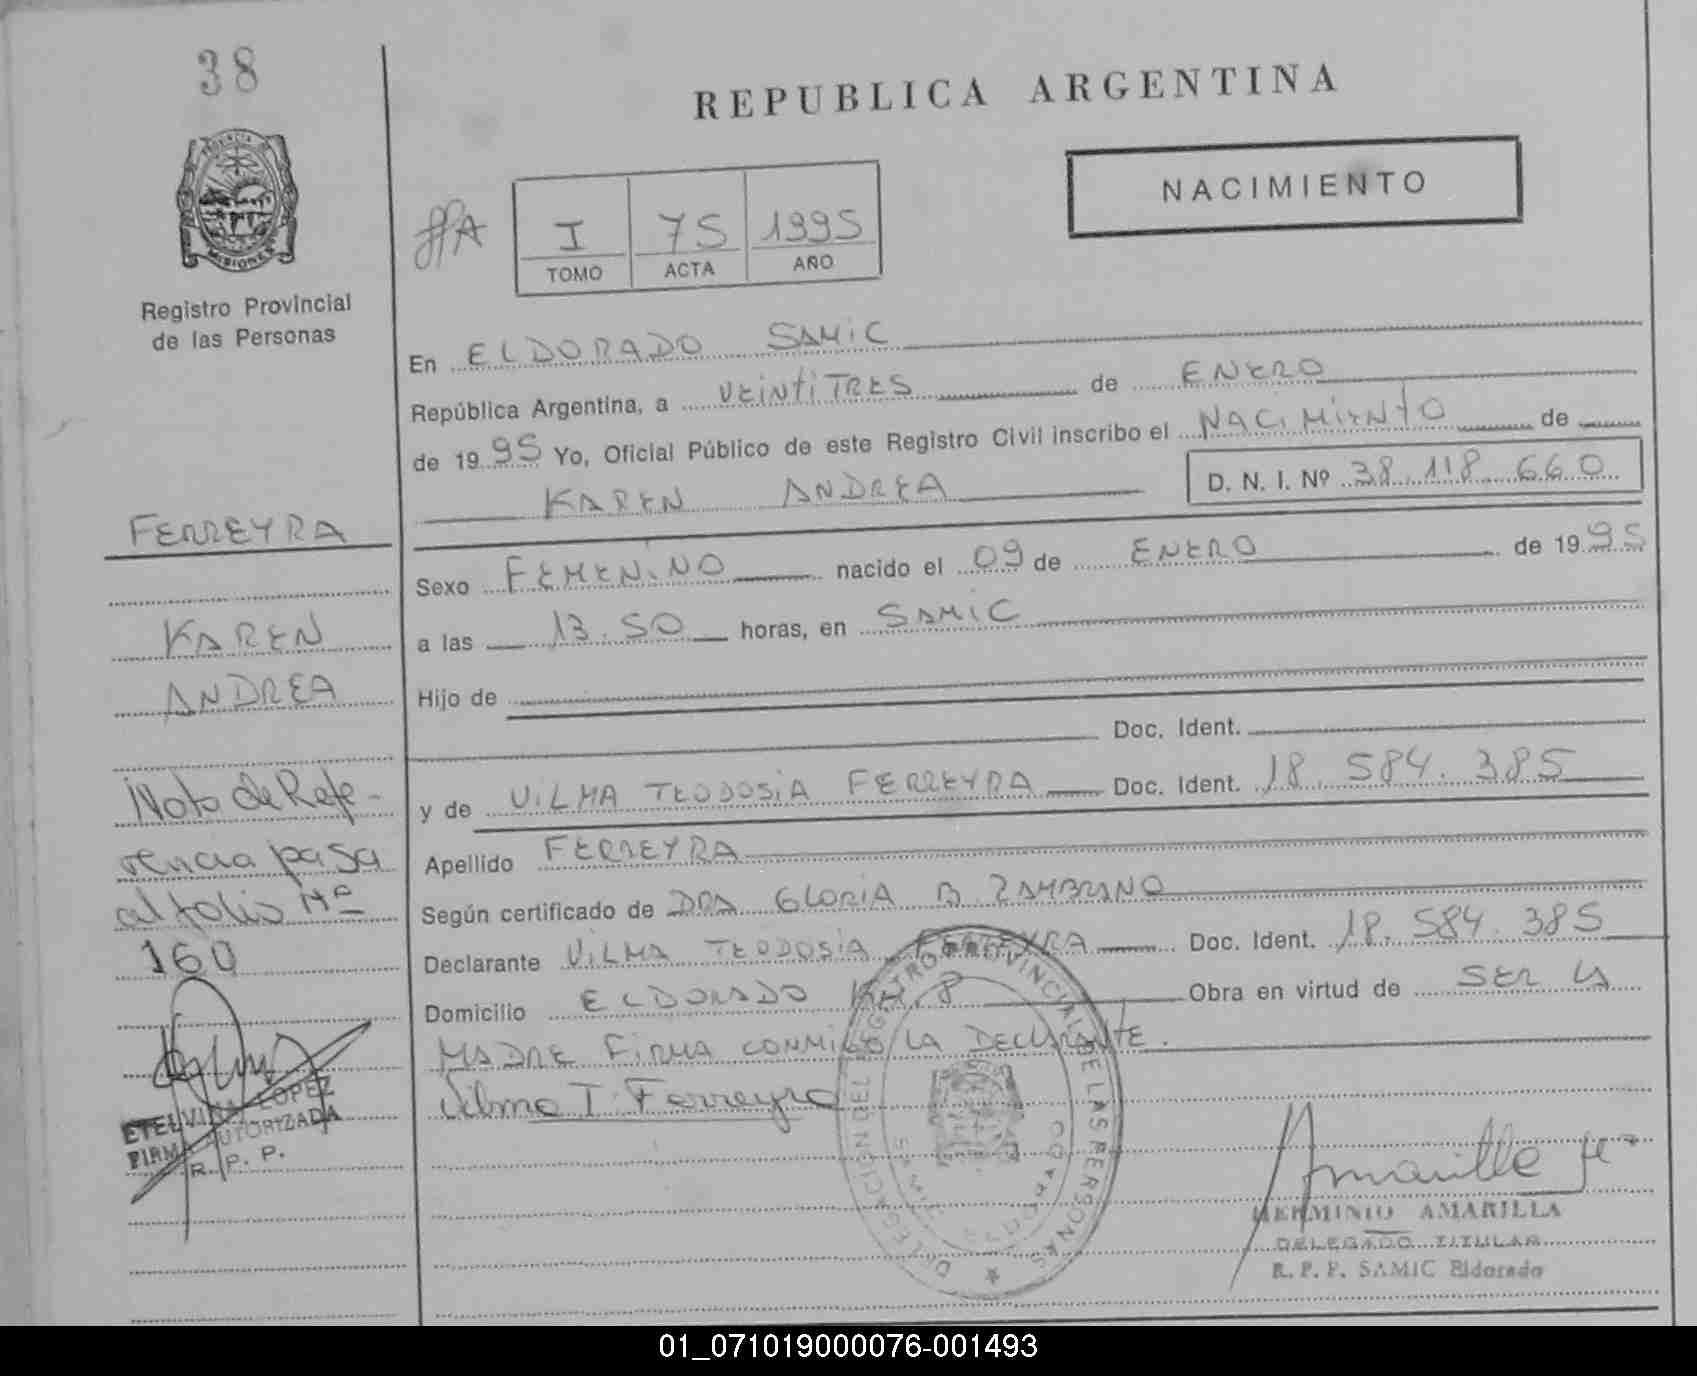 38
REPUBLICA ARGENTINA
NACIMIENTO
PROVINCIA DE
MISIONES
Registro Provincial
de las Personas
I 75 1995
TOMO ACTA AÑO
En ELDORADO SAMIC
República Argentina, a VEINTITRES de ENERO
de 1995 Yo, Oficial Público de este Registro Civil inscribo el NACIMIENTO de
KAREN ANDREA D. N. I. Nº 38.118.660
Sexo FEMENINO nacido el 09 de ENERO de 1995
a las 13.50 horas, en SAMIC
Hijo de
Doc. Ident.
y de VILMA TEODOSIA FERREYRA Doc. Ident. 18.584.385
Apellido FERREYRA
Según certificado de DRA GLORIA B. ZAMBRANO
Declarante VILMA TEODOSIA FERREYRA Doc. Ident. 18.584.385
Domicilio ELDORADO KM. 8 Obra en virtud de SER LA
MADRE FIRMA CONMIGO LA DECLARANTE.
Vilma T. Ferreyra
FERREYRA
KAREN
ANDREA
Nota de Refe-
rencia pasa
al folio Nº
160
ETELVINA LOPEZ
FIRMA AUTORIZADA
R. P. P.
DELEGACION DEL REGISTRO PROVINCIAL DE LAS PERSONAS
Amarilla
HERMINIO AMARILLA
DELEGADO TITULAR
R. P. P. SAMIC Eldorado
01_071019000076-001493